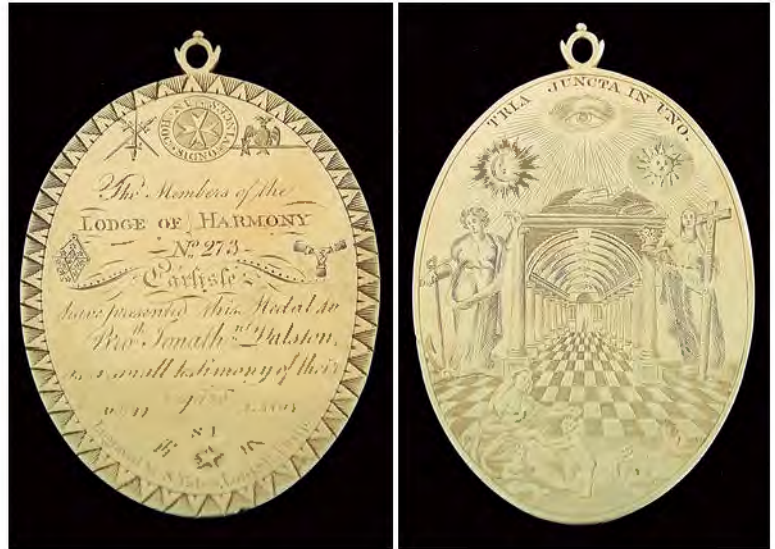 IN · HOC · SIGNO · VINCES
The Members of the
LODGE OF HARMONY
No. 273
Carlisle
have presented this Medal to
Bro.th Jonath.n Dalston,
as a small testimony of their
TRIA JUNCTA IN UNO.